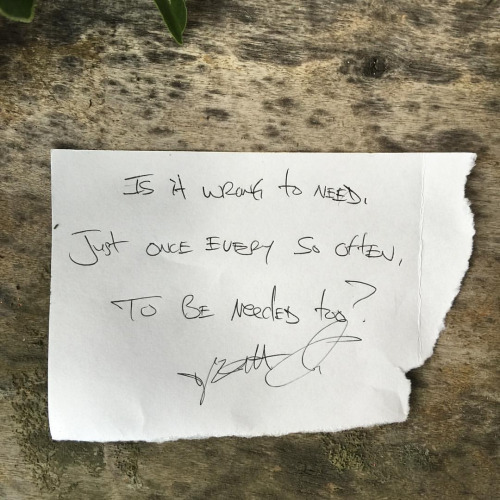 Is it wrong to NEED,
Just once every so often,
To Be Needed too?